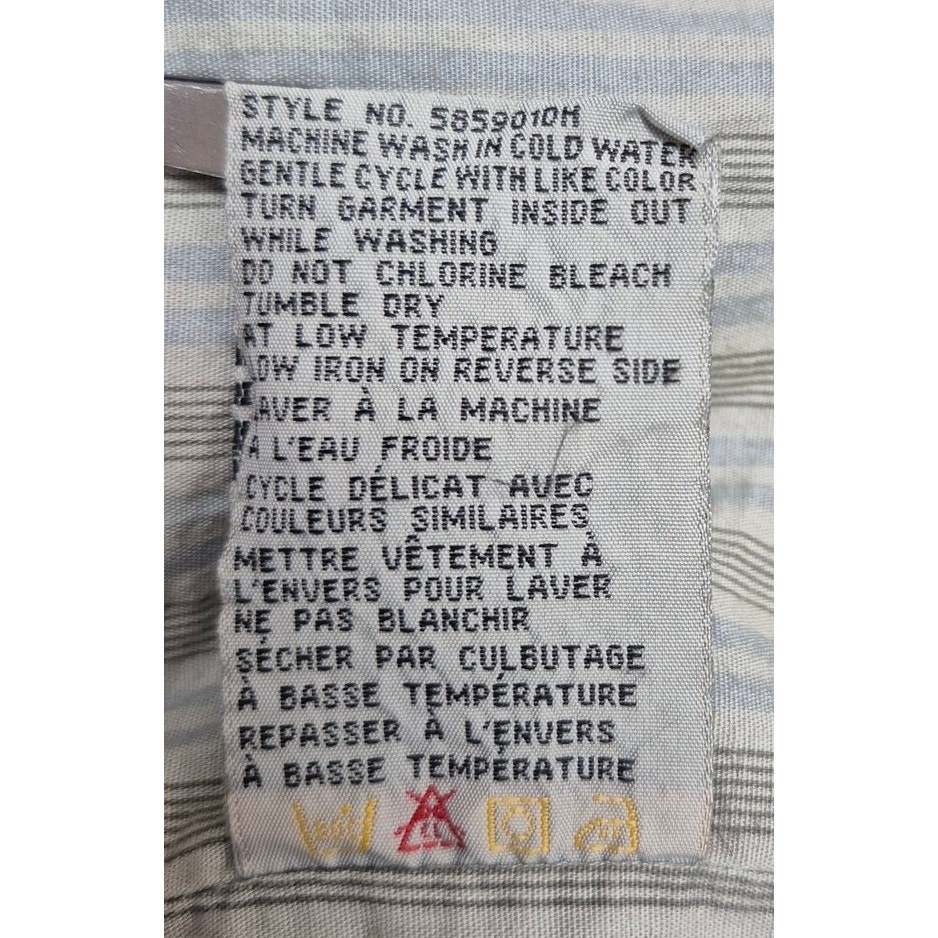 STYLE NO. 585901DH
MACHINE WASH IN COLD WATER
GENTLE CYCLE WITH LIKE COLOR
TURN GARMENT INSIDE OUT
WHILE WASHING
DO NOT CHLORINE BLEACH
TUMBLE DRY
AT LOW TEMPERATURE
LOW IRON ON REVERSE SIDE
LAVER À LA MACHINE
À L'EAU FROIDE
CYCLE DÉLICAT AVEC
COULEURS SIMILAIRES
METTRE VÊTEMENT À
L'ENVERS POUR LAVER
NE PAS BLANCHIR
SÉCHER PAR CULBUTAGE
À BASSE TEMPÉRATURE
REPASSER À L'ENVERS
À BASSE TEMPÉRATURE